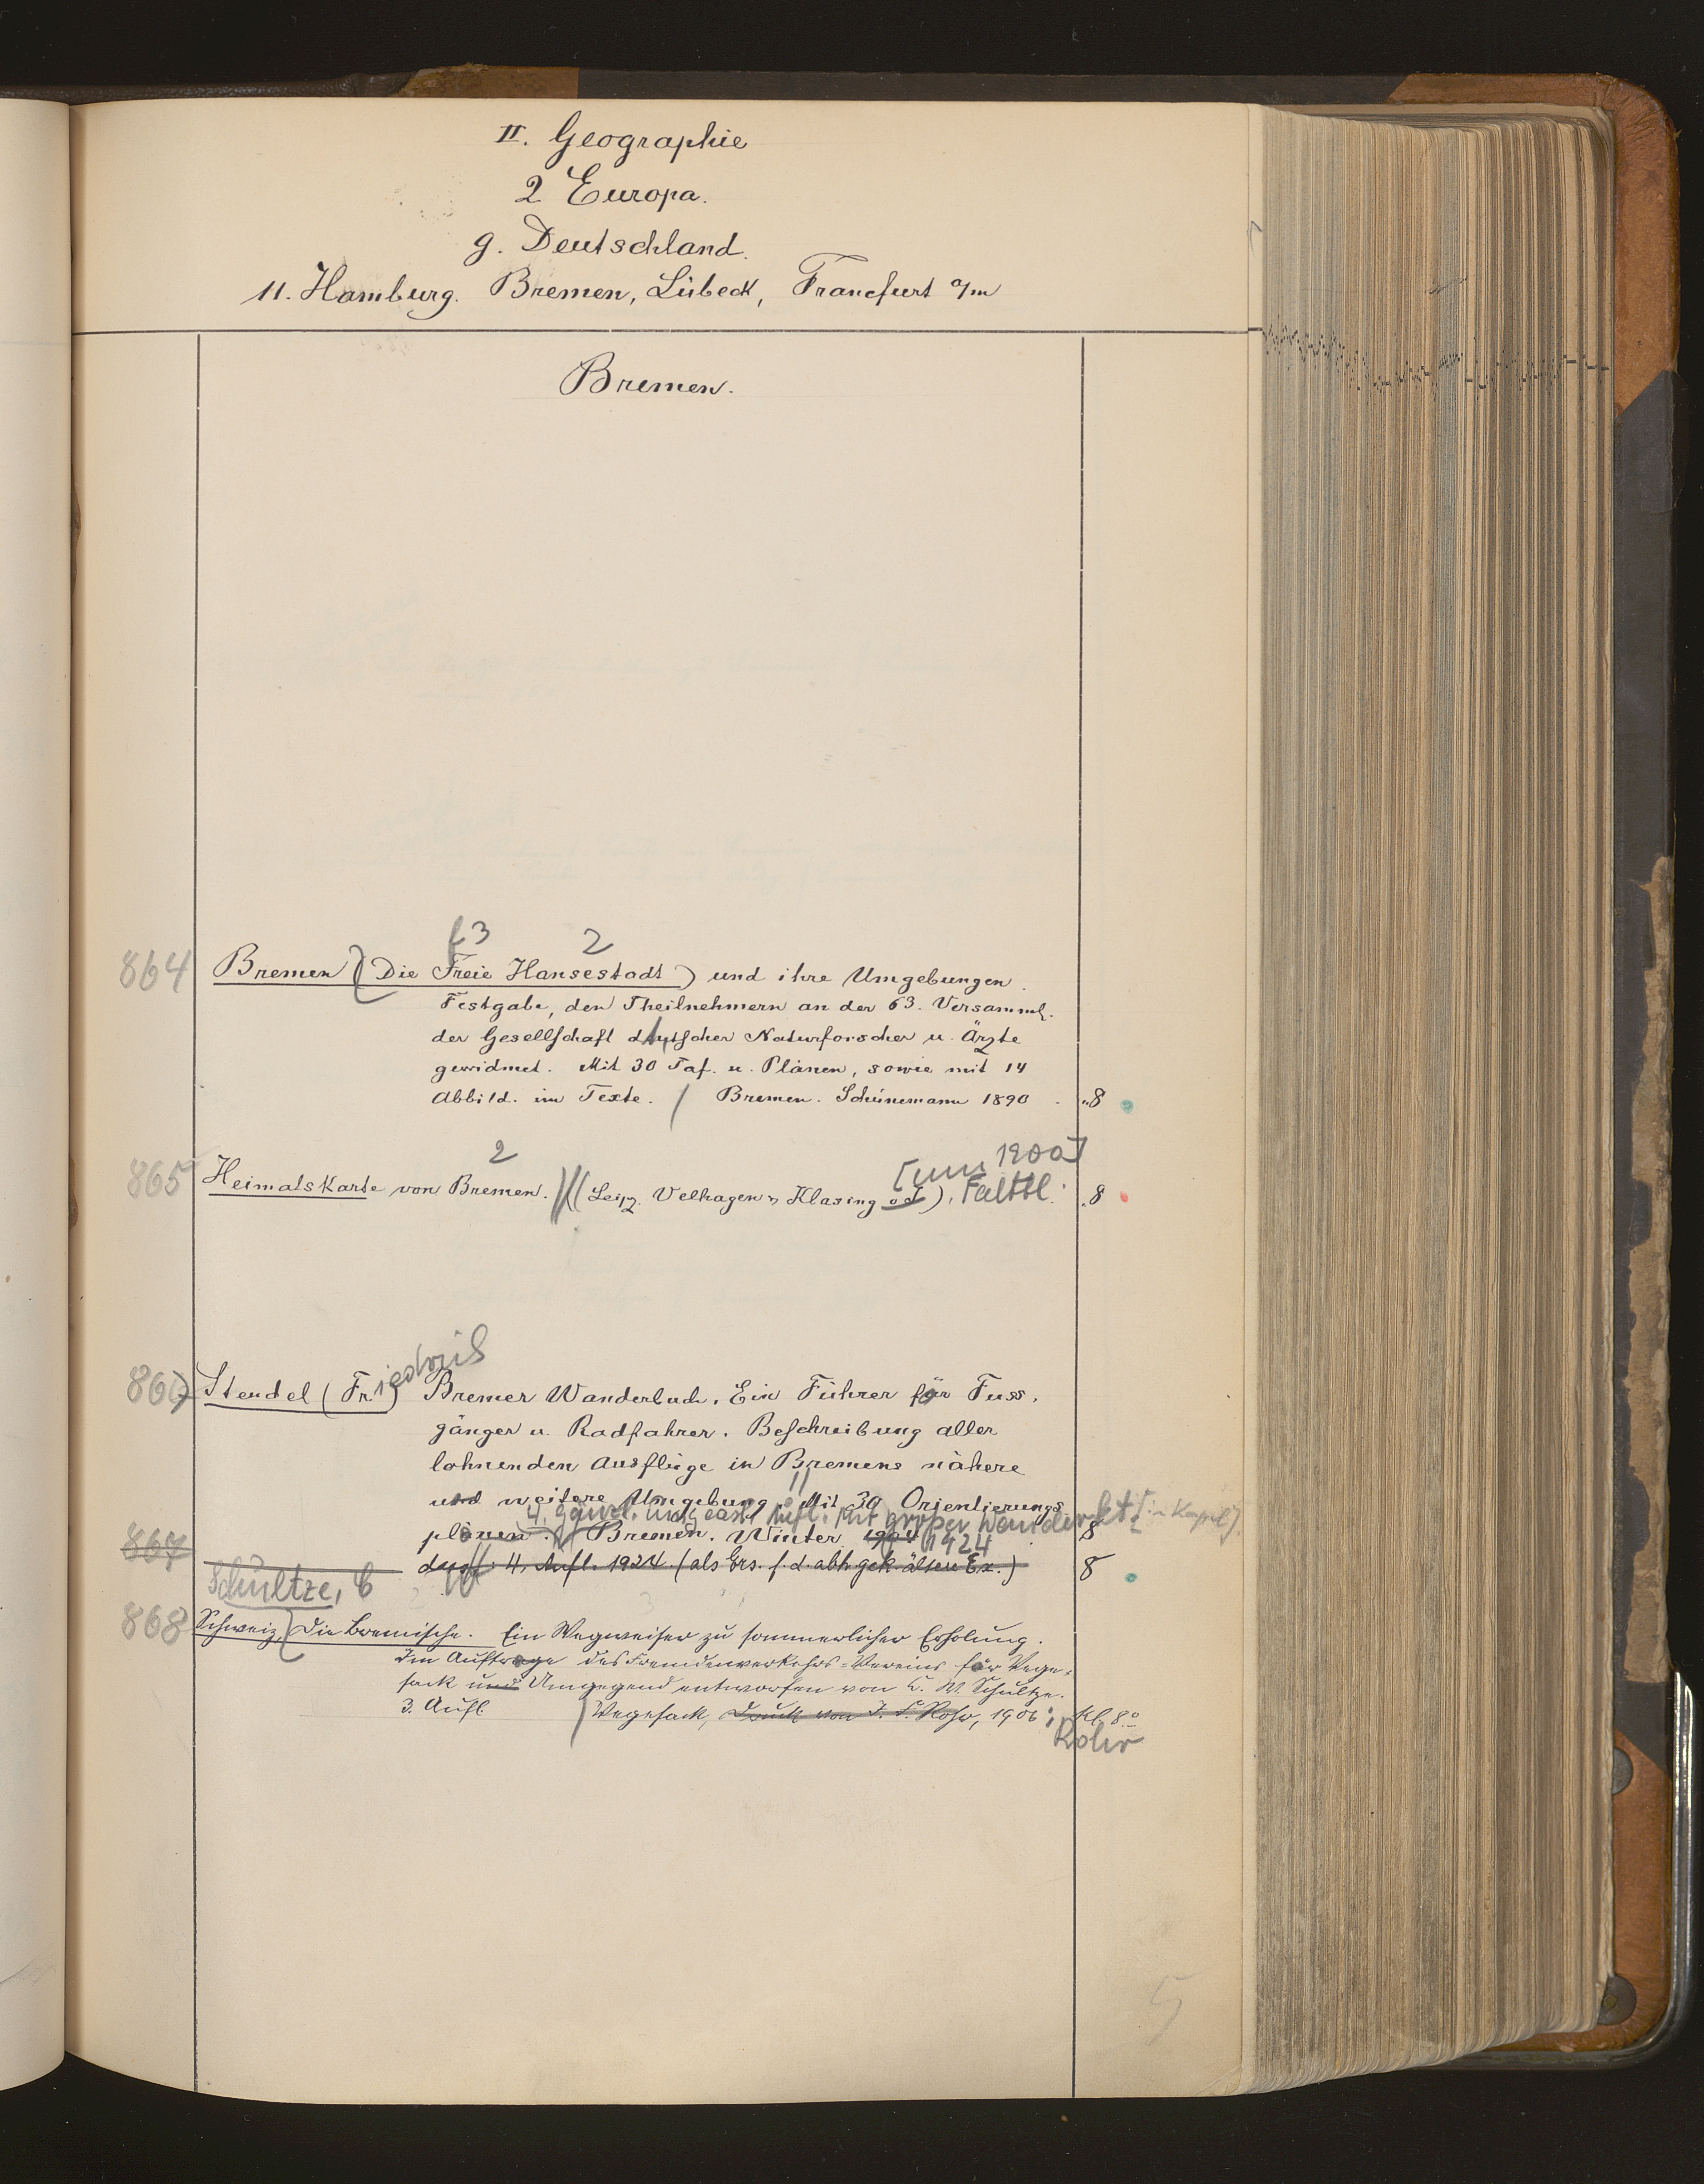 II. Geographie
2 Europa.
g. Deutschland.
11. Hamburg. Bremen, Lübeck, Francfurt a/m
Bremen.
3 2
864 Bremen (Die Freie Hansestadt) und ihre Umgebungen.
Festgabe, den Theilnehmern an der 63. Versamml.
der Gesellschaft deutscher Naturforscher u. Ärzte
gewidmet. Mit 30 Taf. u. Plänen, sowie mit 14
Abbild. im Texte. / Bremen. Schünemann 1890. 8
2 [um 1900]
865 Heimatskarte von Bremen. (Leipz. Velhagen u. Klasing od). Falttl. 8
Friedrich
867 Steudel (Fr.) Bremer Wanderbuch. Ein Führer für Fuss-
gänger u. Radfahrer. Beschreibung aller
lohnenden Ausflüge in Bremens nähere
und weitere Umgebung. Mit 30 Orientierungs
4. gänzl. Aufl. Mit großer Wanderkt. [in Kapsel].
plänen. Bremen. Winter 1924 8
867 4. Aufl. 1924. (als Ers. f. d. abh. gek. ältere Ex.) 8
Schultze, C
868 Schweiz, Die Bremische. Ein Wegweiser zu sommerlicher Erholung.
Im Auftrage des Fremdenverkehrs-Vereins für Vege-
sack und Umgegend entworfen von C. W. Schultze.
3. Aufl. Vegesack, Druck von J. F. Rohr, 1906; Kl. 8°
Rohr
5